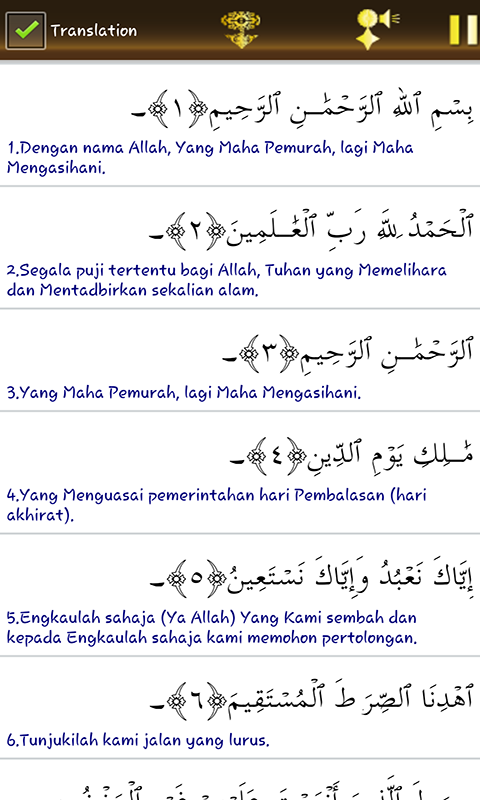 Translation
بِسْمِ ٱللَّهِ ٱلرَّحْمَٰنِ ٱلرَّحِيمِ ﴿١﴾ـ
1.Dengan nama Allah, Yang Maha Pemurah, lagi Maha
Mengasihani.
ٱلْحَمْدُ لِلَّهِ رَبِّ ٱلْعَٰلَمِينَ ﴿٢﴾ـ
2.Segala puji tertentu bagi Allah, Tuhan yang Memelihara
dan Mentadbirkan sekalian alam.
ٱلرَّحْمَٰنِ ٱلرَّحِيمِ ﴿٣﴾ـ
3.Yang Maha Pemurah, lagi Maha Mengasihani.
مَٰلِكِ يَوْمِ ٱلدِّينِ ﴿٤﴾ـ
4.Yang Menguasai pemerintahan hari Pembalasan (hari
akhirat).
إِيَّاكَ نَعْبُدُ وَإِيَّاكَ نَسْتَعِينُ ﴿٥﴾ـ
5.Engkaulah sahaja (Ya Allah) Yang Kami sembah dan
kepada Engkaulah sahaja kami memohon pertolongan.
ٱهْدِنَا ٱلصِّرَ طَ ٱلْمُسْتَقِيمَ ﴿٦﴾ـ
6.Tunjukilah kami jalan yang lurus.